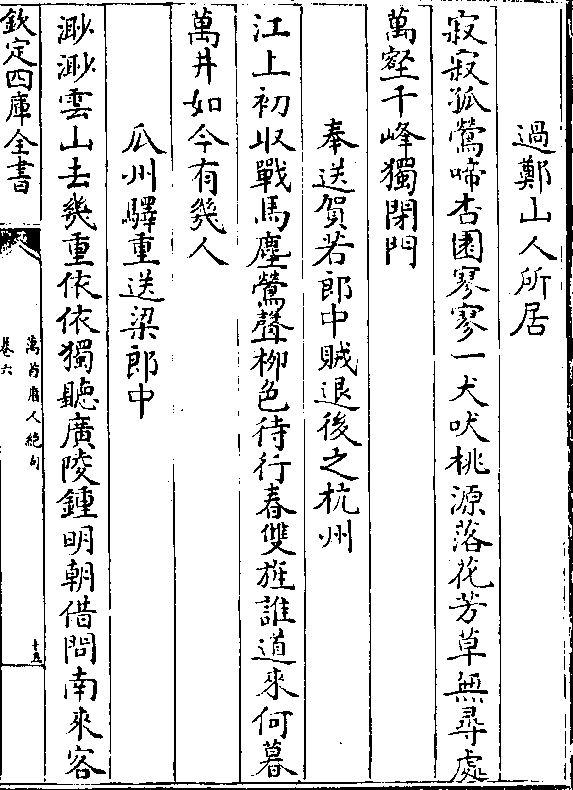 過鄭山人所居
寂寂孤鶯啼杏園寥寥一犬吠桃源落花芳草無尋處
萬壑千峰獨閉門
奉送賀若郎中賊退後之杭州
江上初收戰馬塵鶯聲柳色待行春雙旌誰道來何暮
萬井如今有幾人
瓜州驛重送梁郎中
渺渺雲山去幾重依依獨聽廣陵鍾明朝借問南來客
欽定四庫全書
萬首唐人絶句
卷六
十五